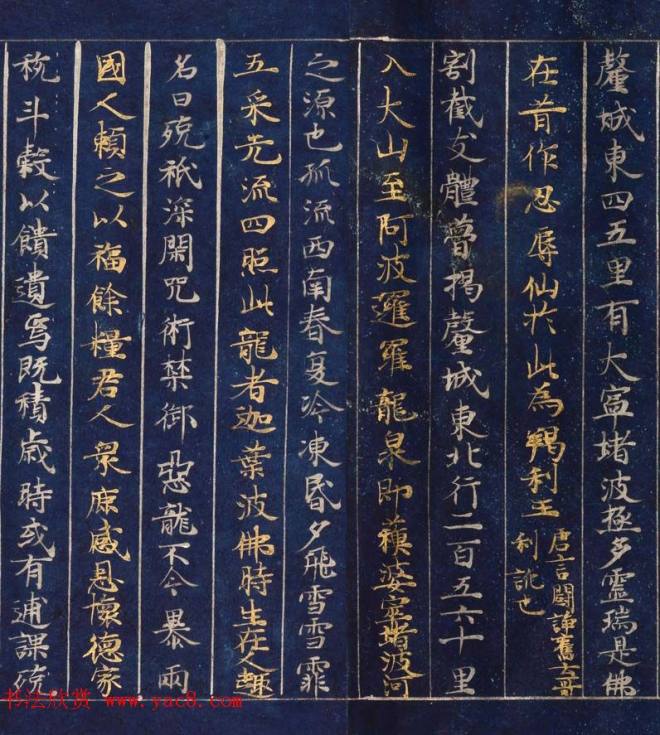 釐城東四五里有大窣堵波極多靈瑞是佛
在昔作忍辱仙於此為羯利王唐言鬪諍舊云哥利訛也
割截支體瞢揭釐城東北行二百五六十里
入大山至阿波邏羅龍泉即蘇婆窣堵波河
之源也孤流西南春夏冷凍昏夕飛雪雪霏
五采光流四照此龍者迦葉波佛時生在人趣
名曰殑祇深閑咒術禁御惡龍不令暴雨
國人賴之以福餘糧君人眾庶感恩懷德家
稅斗穀以饋遺焉既積歲時或有逋課殑
书法欣赏 www.yac8.com